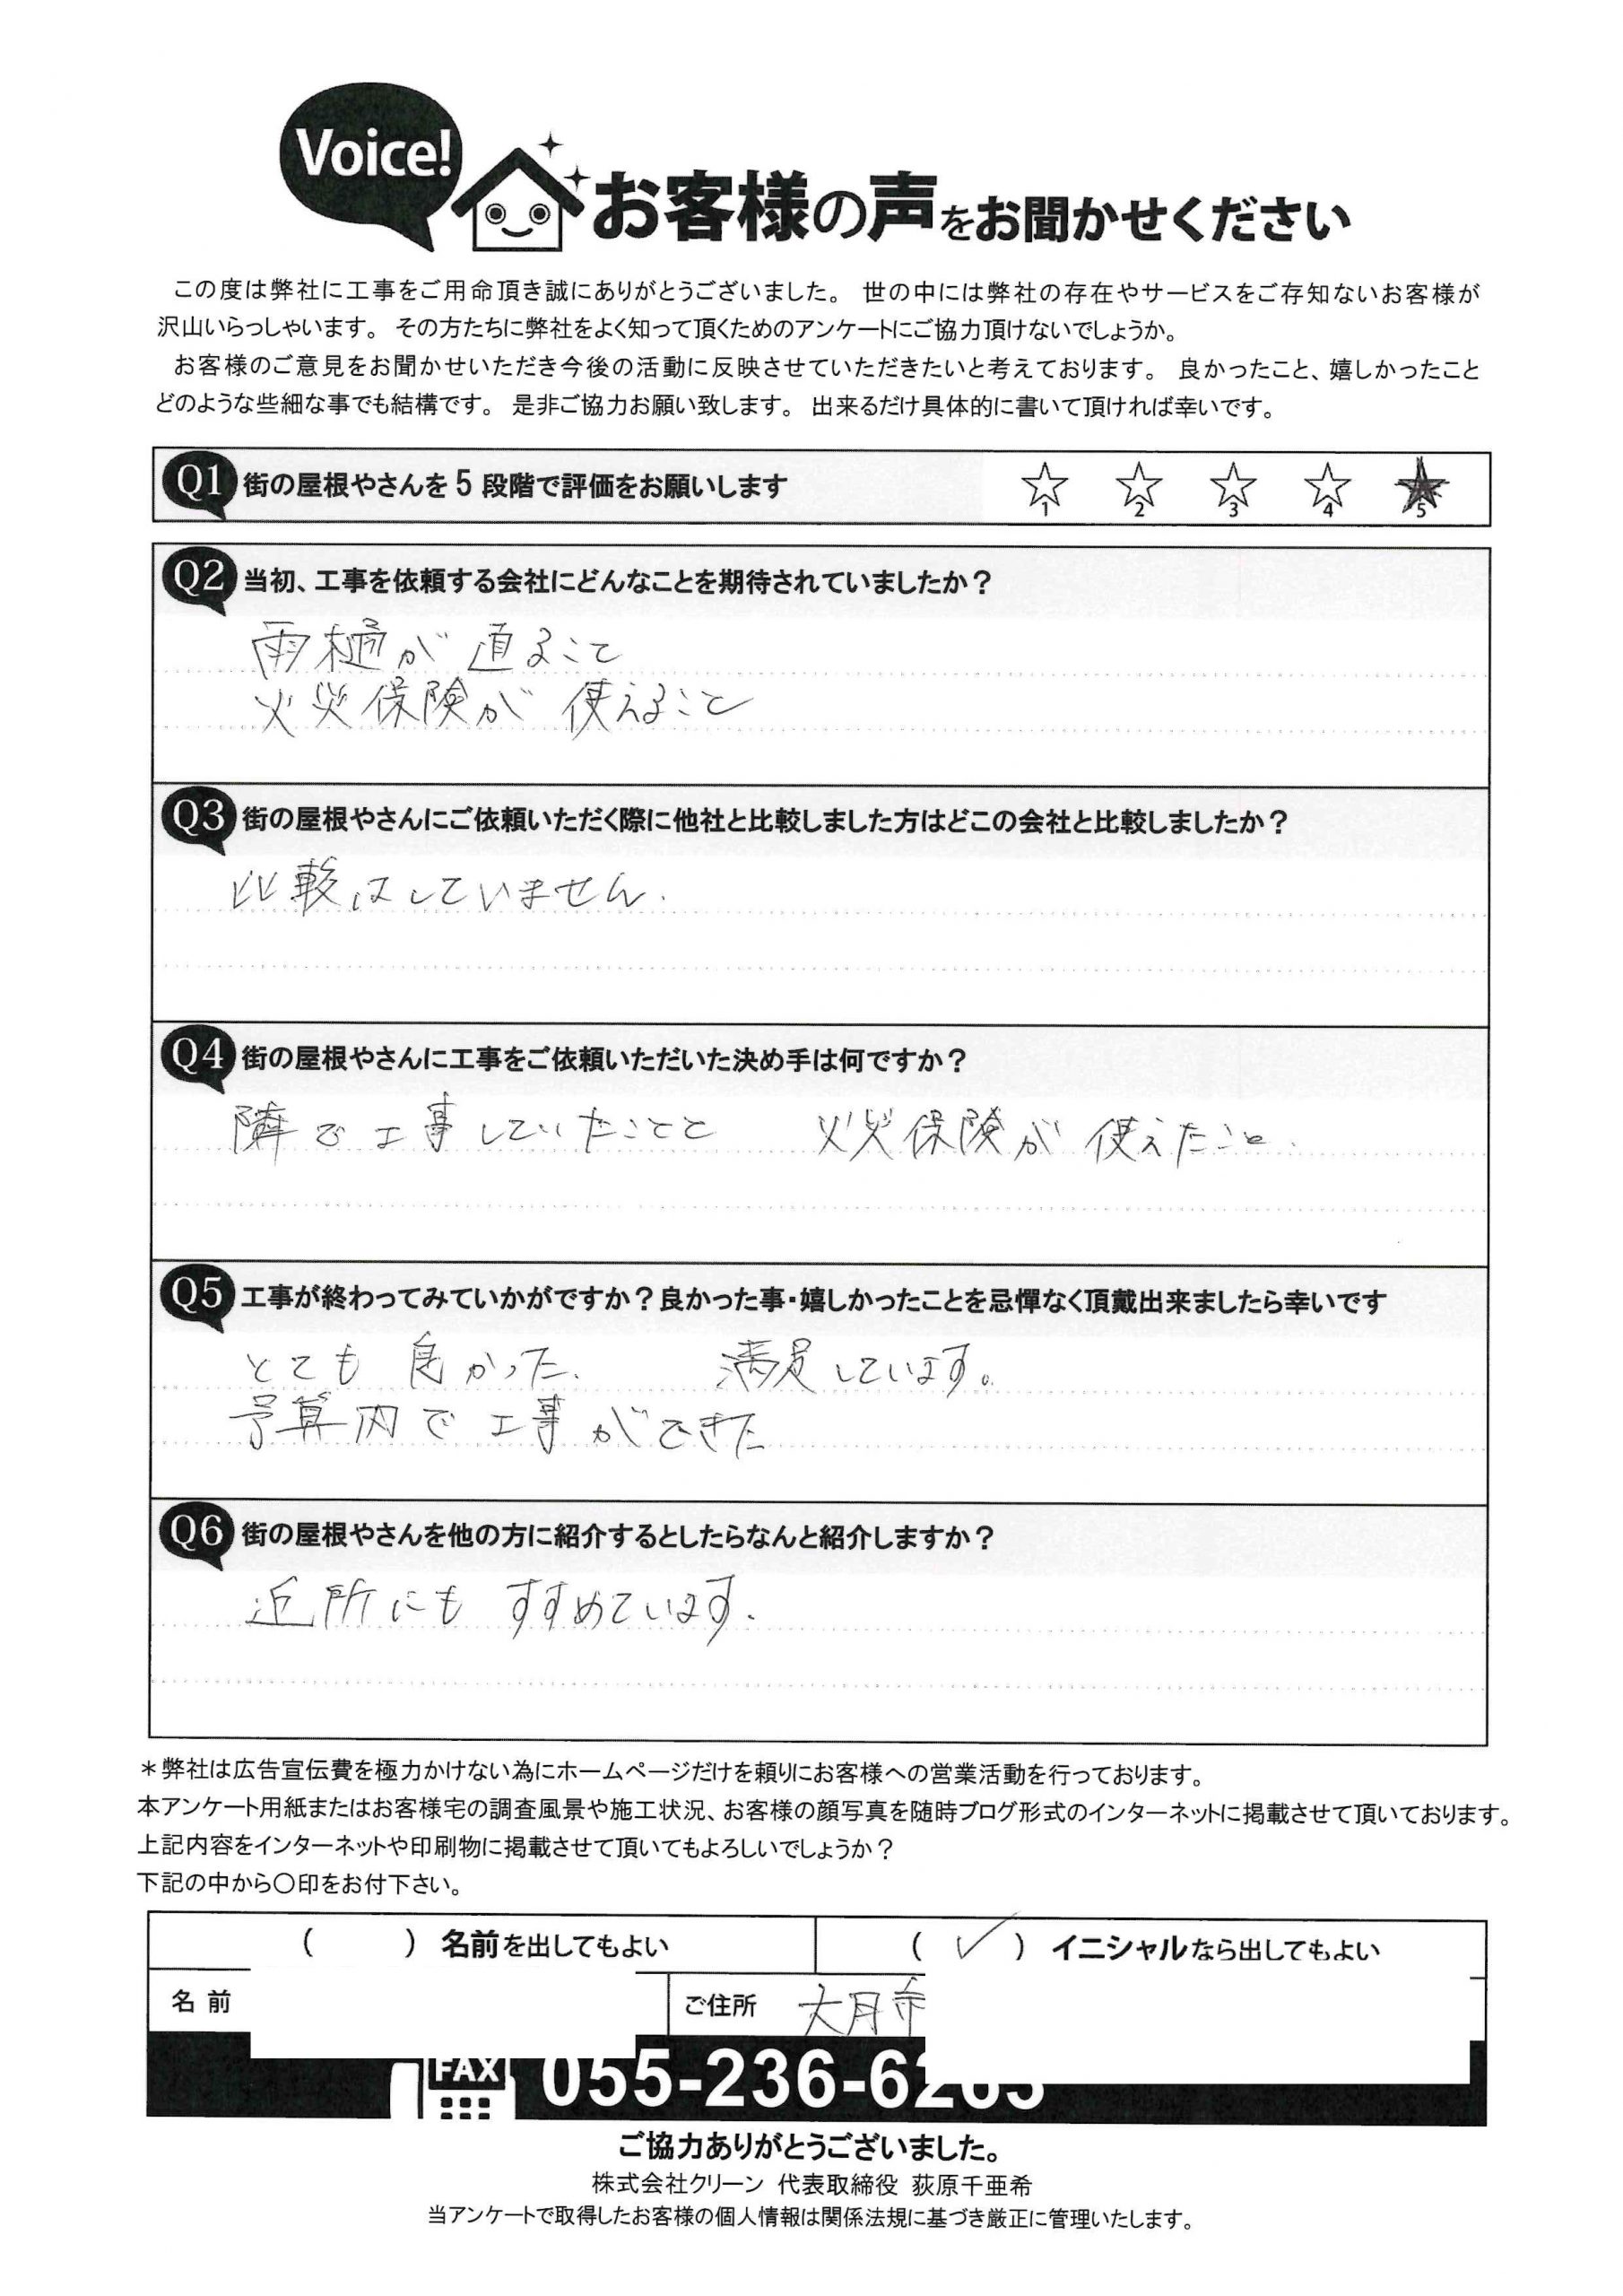 Voice!
お客様の声をお聞かせください
この度は弊社に工事をご用命頂き誠にありがとうございました。 世の中には弊社の存在やサービスをご存知ないお客様が
沢山いらっしゃいます。 その方たちに弊社をよく知って頂くためのアンケートにご協力頂けないでしょうか。
お客様のご意見をお聞かせいただき今後の活動に反映させていただきたいと考えております。 良かったこと、嬉しかったこと
どのような些細な事でも結構です。 是非ご協力お願い致します。 出来るだけ具体的に書いて頂ければ幸いです。
Q1 街の屋根やさんを5段階で評価をお願いします ☆1 ☆2 ☆3 ☆4 ★5
Q2 当初、工事を依頼する会社にどんなことを期待されていましたか？
雨樋が 直ること
火災保険が 使えること
Q3 街の屋根やさんにご依頼いただく際に他社と比較しました方はどこの会社と比較しましたか？
比較はしていません.
Q4 街の屋根やさんに工事をご依頼いただいた決め手は何ですか？
隣で工事していたことと 火災保険が 使えたこと.
Q5 工事が終わってみていかがですか？良かった事・嬉しかったことを忌憚なく頂戴出来ましたら幸いです
とても 良かった. 満足しています。
予算内で 工事ができた
Q6 街の屋根やさんを他の方に紹介するとしたらなんと紹介しますか？
近所にも すすめています.
＊弊社は広告宣伝費を極力かけない為にホームページだけを頼りにお客様への営業活動を行っております。
本アンケート用紙またはお客様宅の調査風景や施工状況、お客様の顔写真を随時ブログ形式のインターネットに掲載させて頂いております。
上記内容をインターネットや印刷物に掲載させて頂いてもよろしいでしょうか？
下記の中から〇印をお付下さい。
( ) 名前を出してもよい ( ✓ ) イニシャルなら出してもよい
名 前 ご住所 大月市
FAX 055-236-6
ご協力ありがとうございました。
株式会社クリーン 代表取締役 荻原千亜希
当アンケートで取得したお客様の個人情報は関係法規に基づき厳正に管理いたします。